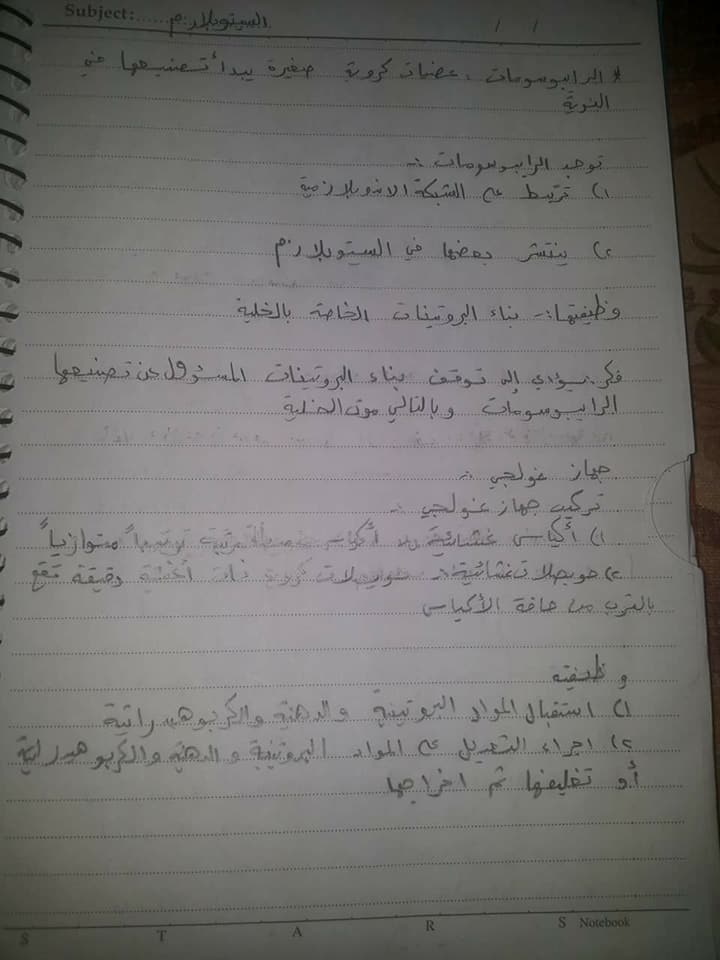 Subject:...... السيتوبلازم / /
* الرايبوسومات : عضيات كروية صغيرة يبدأ تصنيعها في
النوية
توجد الرايبوسومات :-
١) ترتبط على الشبكة الاندوبلازمية
٢) ينتشر بعضها في السيتوبلازم
وظيفتها :- بناء البروتينات الخاصة بالخلية
فكر : يؤدي إلى توقف بناء البروتينات المسئول عن تصنيعها
الرايبوسومات وبالتالي موت الخلية
جهاز غولجي :-
تركيب جهاز غولجي :-
١) أكياس غشائية مرتبة ترتيباً متوازياً
٢) حويصلات غشائية :- حويصلات كروية ذات أغشية دقيقة تقع
بالقرب من حافة الأكياس
وظيفته
١) استقبال المواد البروتينية والدهنية والكربوهيدراتية
٢) اجراء التعديل على المواد البروتينية والدهنية والكربوهيدراتية
أو تغليفها ثم اخراجها
S T A R S Notebook